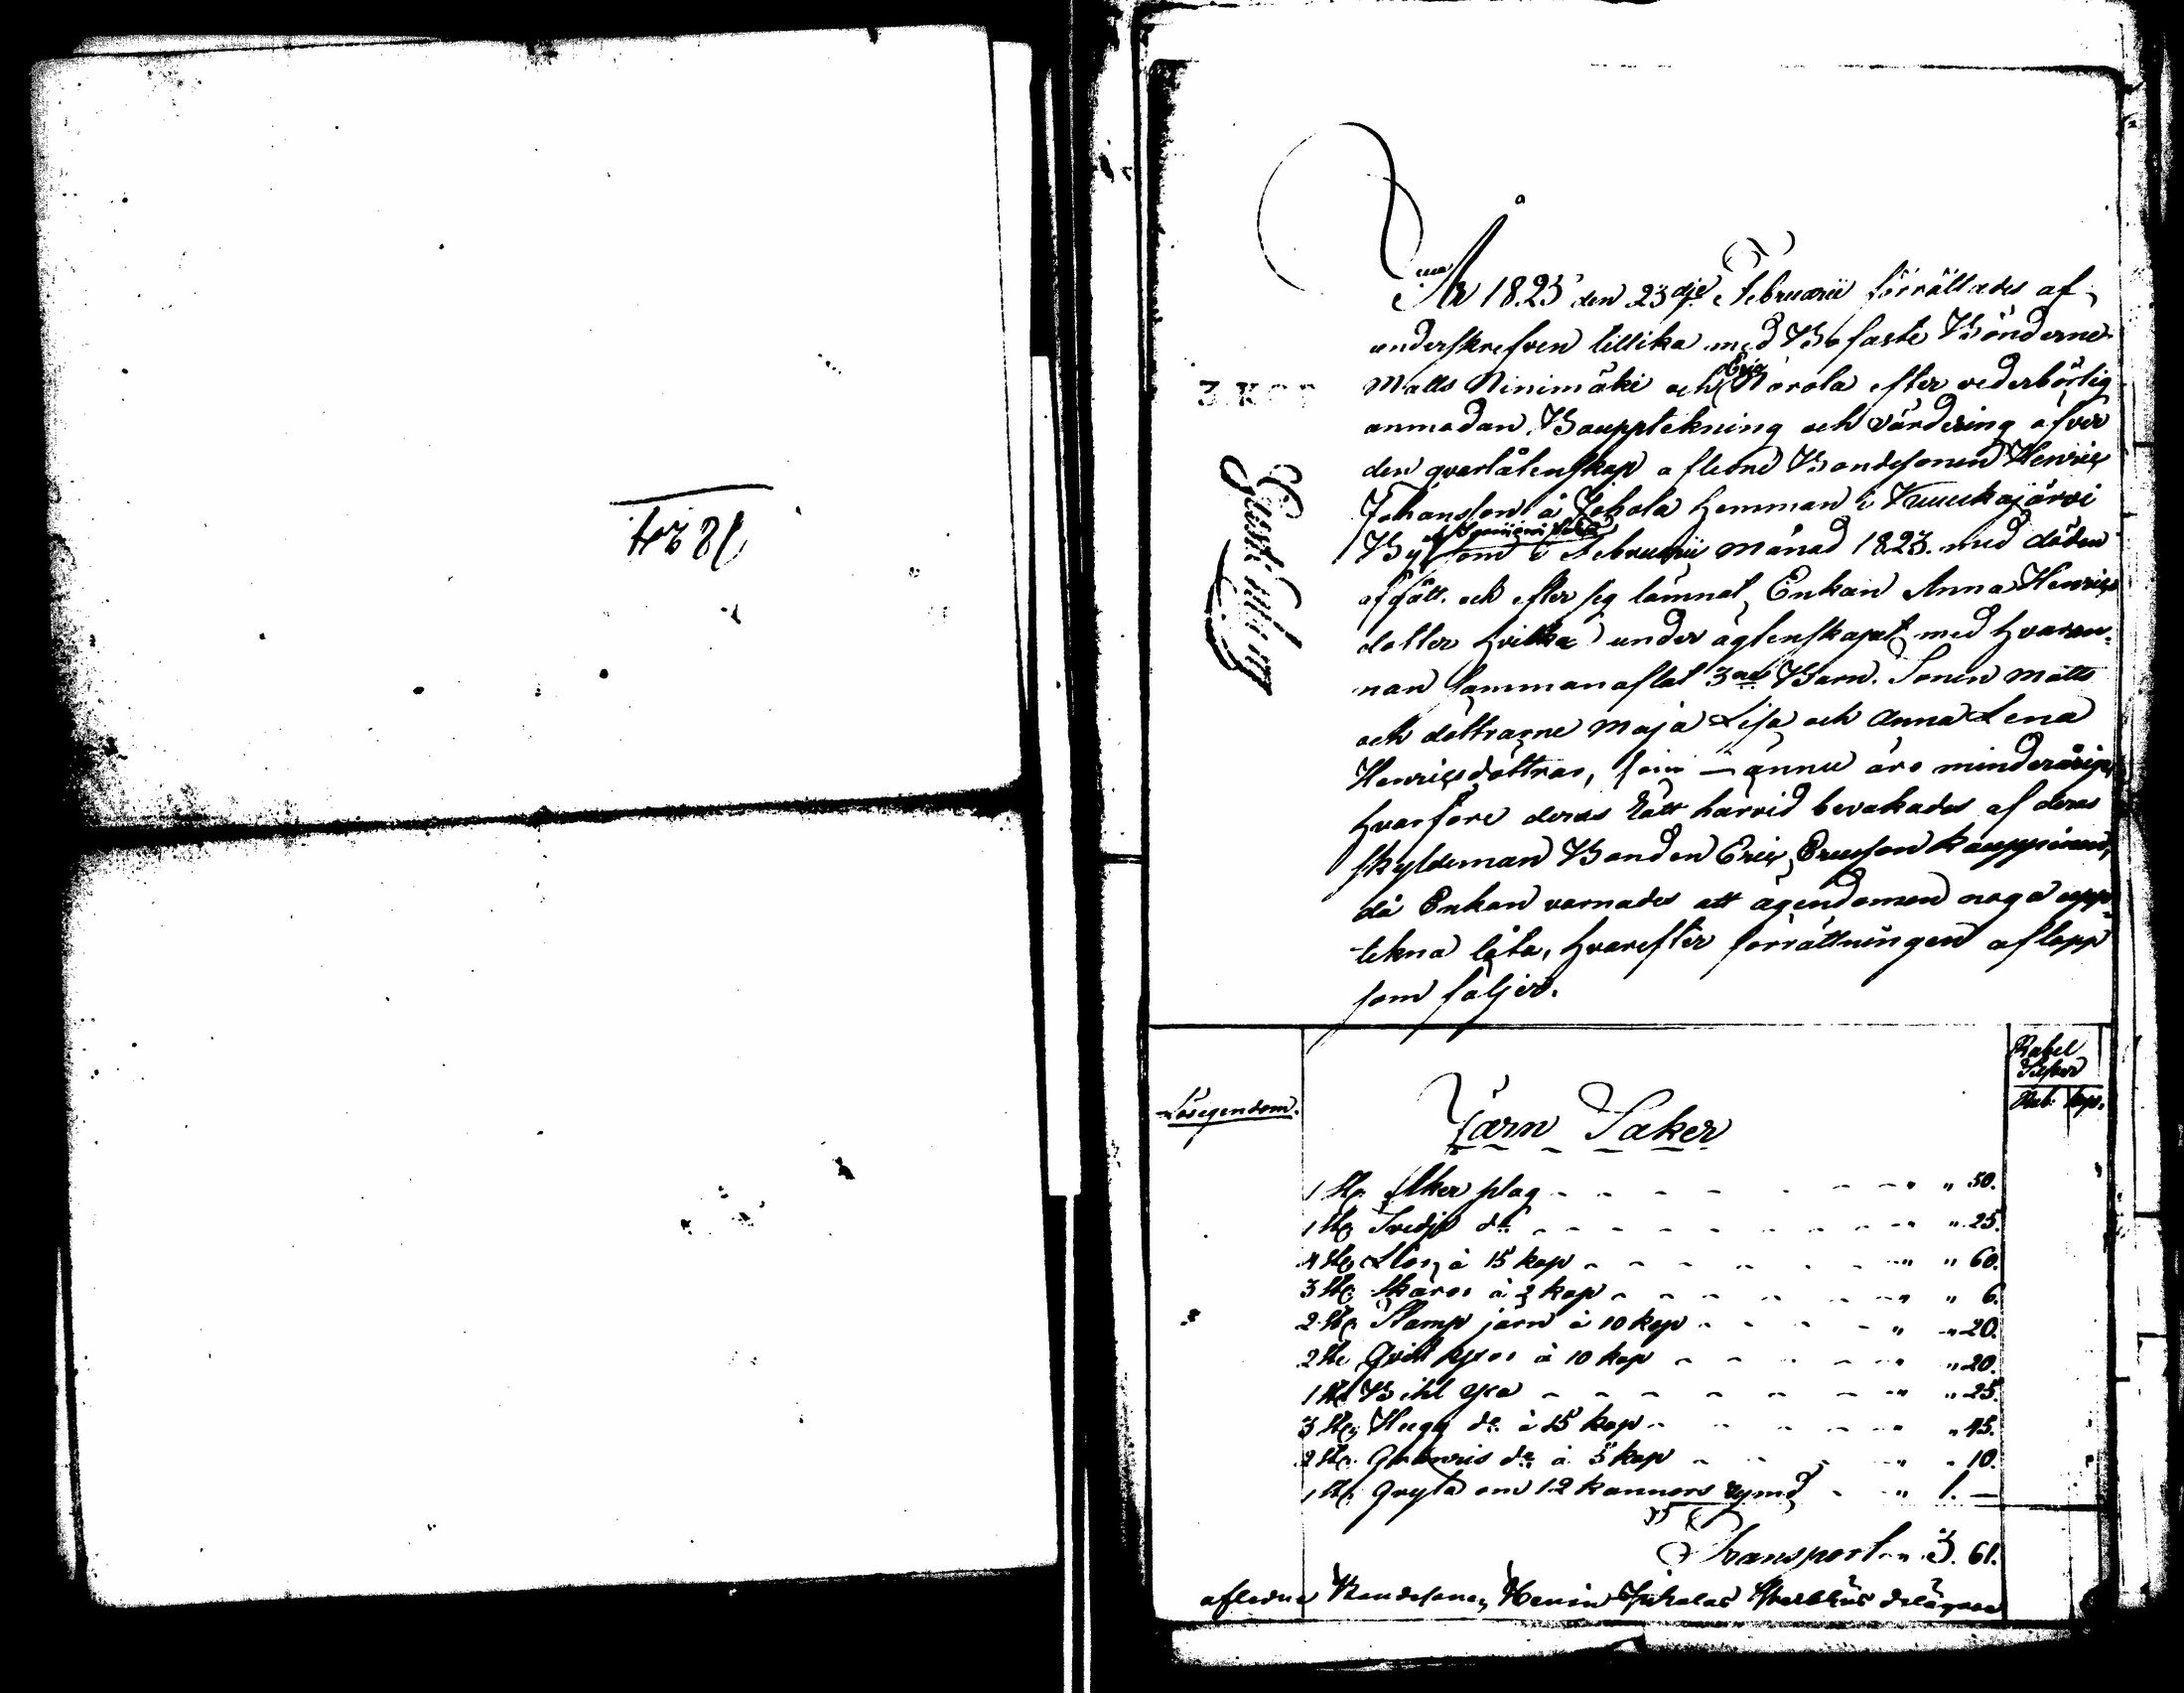 1824
År 1823 den 23dje Februarii förrättades af
underskrefven tillika med Bofaste Bönderne
Matts Ninimäki och Eric Norola efter vederbörlig
anmodan, Bouppteckning och värdering öfver
den qvarlåtenskap aflidne Bondesonen Henric
Johansson å Johola Hemman i Kuuckajärvi
By som i Februarii månad 1823. med döden
afgått. och efter sig lämnat Enkan Anna Henrics
dotter hvilka under ägtenskapet med hvaran-
nan sammanaflat 3ne Barn. Sonen Matts
och döttrarne Maja Lisa och Anna Lena
Henricsdöttrar, som ännu äro minderåriga,
hvarföre deras Rätt härvid bevakades af deras
skyldeman Bonden Eric Ericsson Kauppinen,
då Enkan varnades att ägendomen noga upp-
tekna låta, hvarefter förrättningen aflopp
som följer.
3. KOP
Rubel
Silfver
Rub. kop.
Lösegendom.
Järn Saker
1 St. Åker plog - - - " " 50.
1 St. Svedje do - - - " " 25.
4 St. Liar à 15 kop - - - " " 60.
3 St. Skäror à 2 kop - - - " " 6.
2 St. Stamp järn à 10 kop - - - " " 20.
2 St. à 10 kop - - - " " 20.
1 St. Bihl yxa - - - " " 25.
3 St. Hugg do à 15 kop - - - " " 45.
2 St. do à 5 kop - - - " " 10.
1 St. Gryta om 12 kannors rymd - - " 1. —
Transport 3. 61.
aflidne Bondesonen Henric Joholas Sterbhus delägare